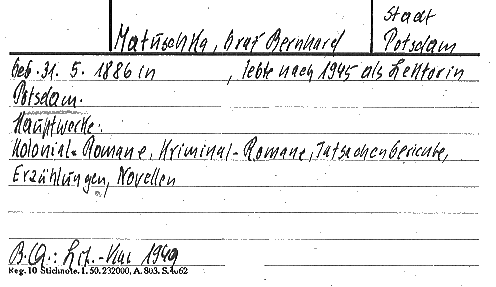 Stadt
Matuschka, Graf Bernhard Potsdam
geb. 31. 5. 1886 in , lebte nach 1945 als Lektor in
Potsdam.
Hauptwerke:
Kolonial-Romane, Kriminal-Romane, Tatsachenberichte,
Erzählungen, Novellen
B.Q.: Lit.-Kal 1949
Reg. 10 Stichnote. I. 50. 232000, A. 803. S. 4062